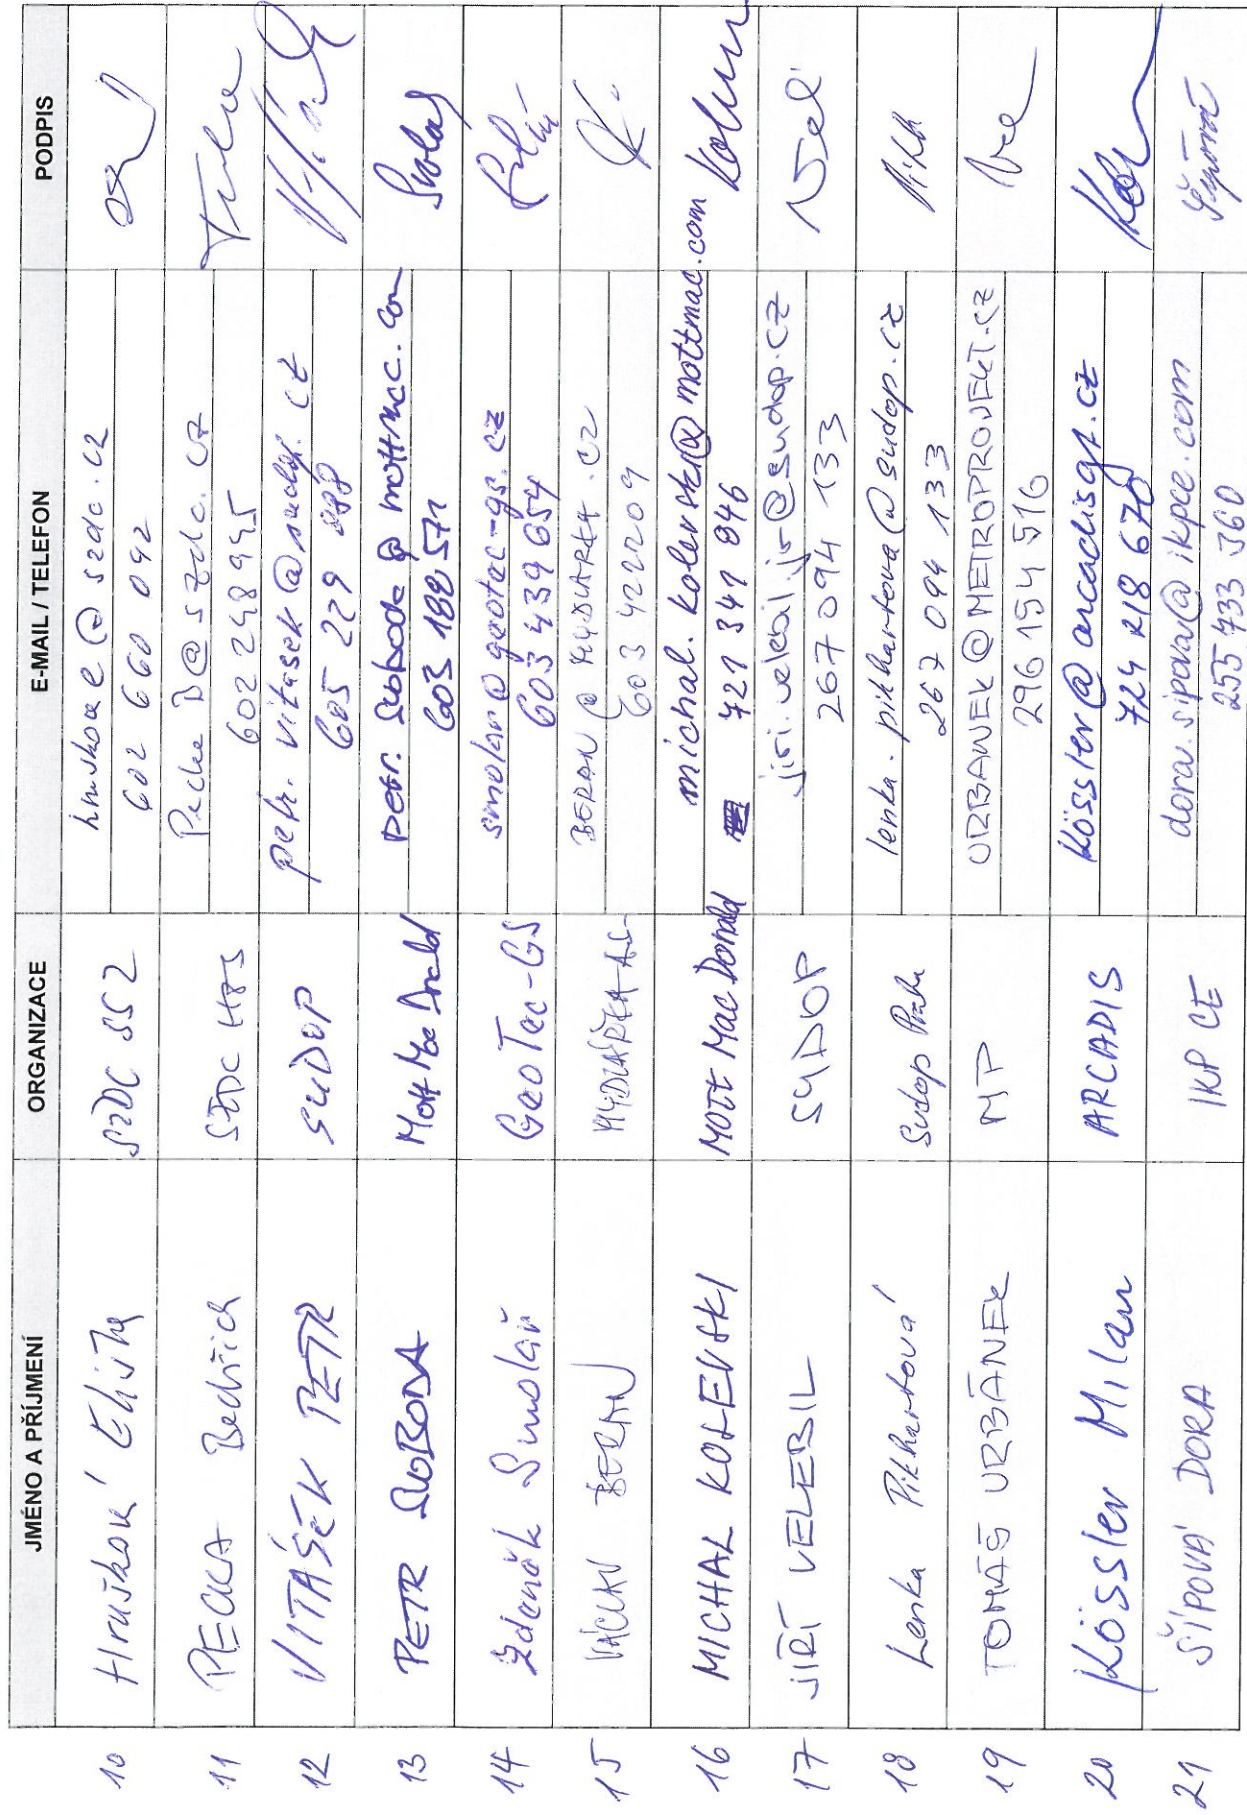 JMÉNO A PŘÍJMENÍ ORGANIZACE E-MAIL / TELEFON PODPIS
10 Hrušková SŽDC SS2 @szdc.cz
602 660 092
11 PECKA Bedřich SŽDC @szdc.cz
602 248 945
12 VITÁSEK PETR SUDOP petr.vitasek@sudop.cz
605 229
13 PETR SVOBODA Mott MacDonald petr.svoboda@mottmac.com
603 188 571
14 Zdeněk Smolař GeoTec-GS smolar@geotec-gs.cz
603 439 654
15 VÁCLAV BERAN BERAN@
603 422209
16 MICHAL KOLEVSKI MOTT MacDonald michal.kolevski@mottmac.com
721 341 846
17 JIŘÍ VELEBIL SUDOP jiri.velebil.jr@sudop.cz
267 094 133
18 Lenka Pikhartová Sudop Praha lenka.pikhartova@sudop.cz
267 094 133
19 TOMÁŠ URBÁNEK MP URBANEK@METROPROJEKT.CZ
296 154 516
20 Kössler Milan ARCADIS kössler@arcadisgt.cz
724 218 670
21 ŠÍPOVÁ DORA IKP CE dora.sipova@ikpce.com Šípová
255 733 360